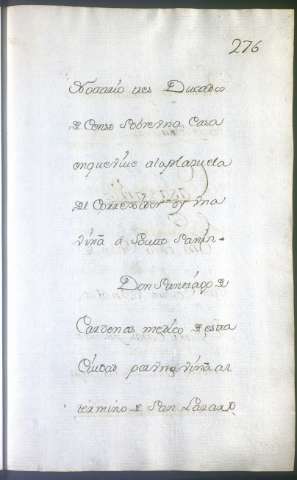 276
Notario tres Ducados
de Censo sobre una Casa
en que vive a la plazuela
del Correxidor y una
viña
Don Santiago de
Cardenas medico de esta
Ciudad por una viña al
termino de San Lazaro